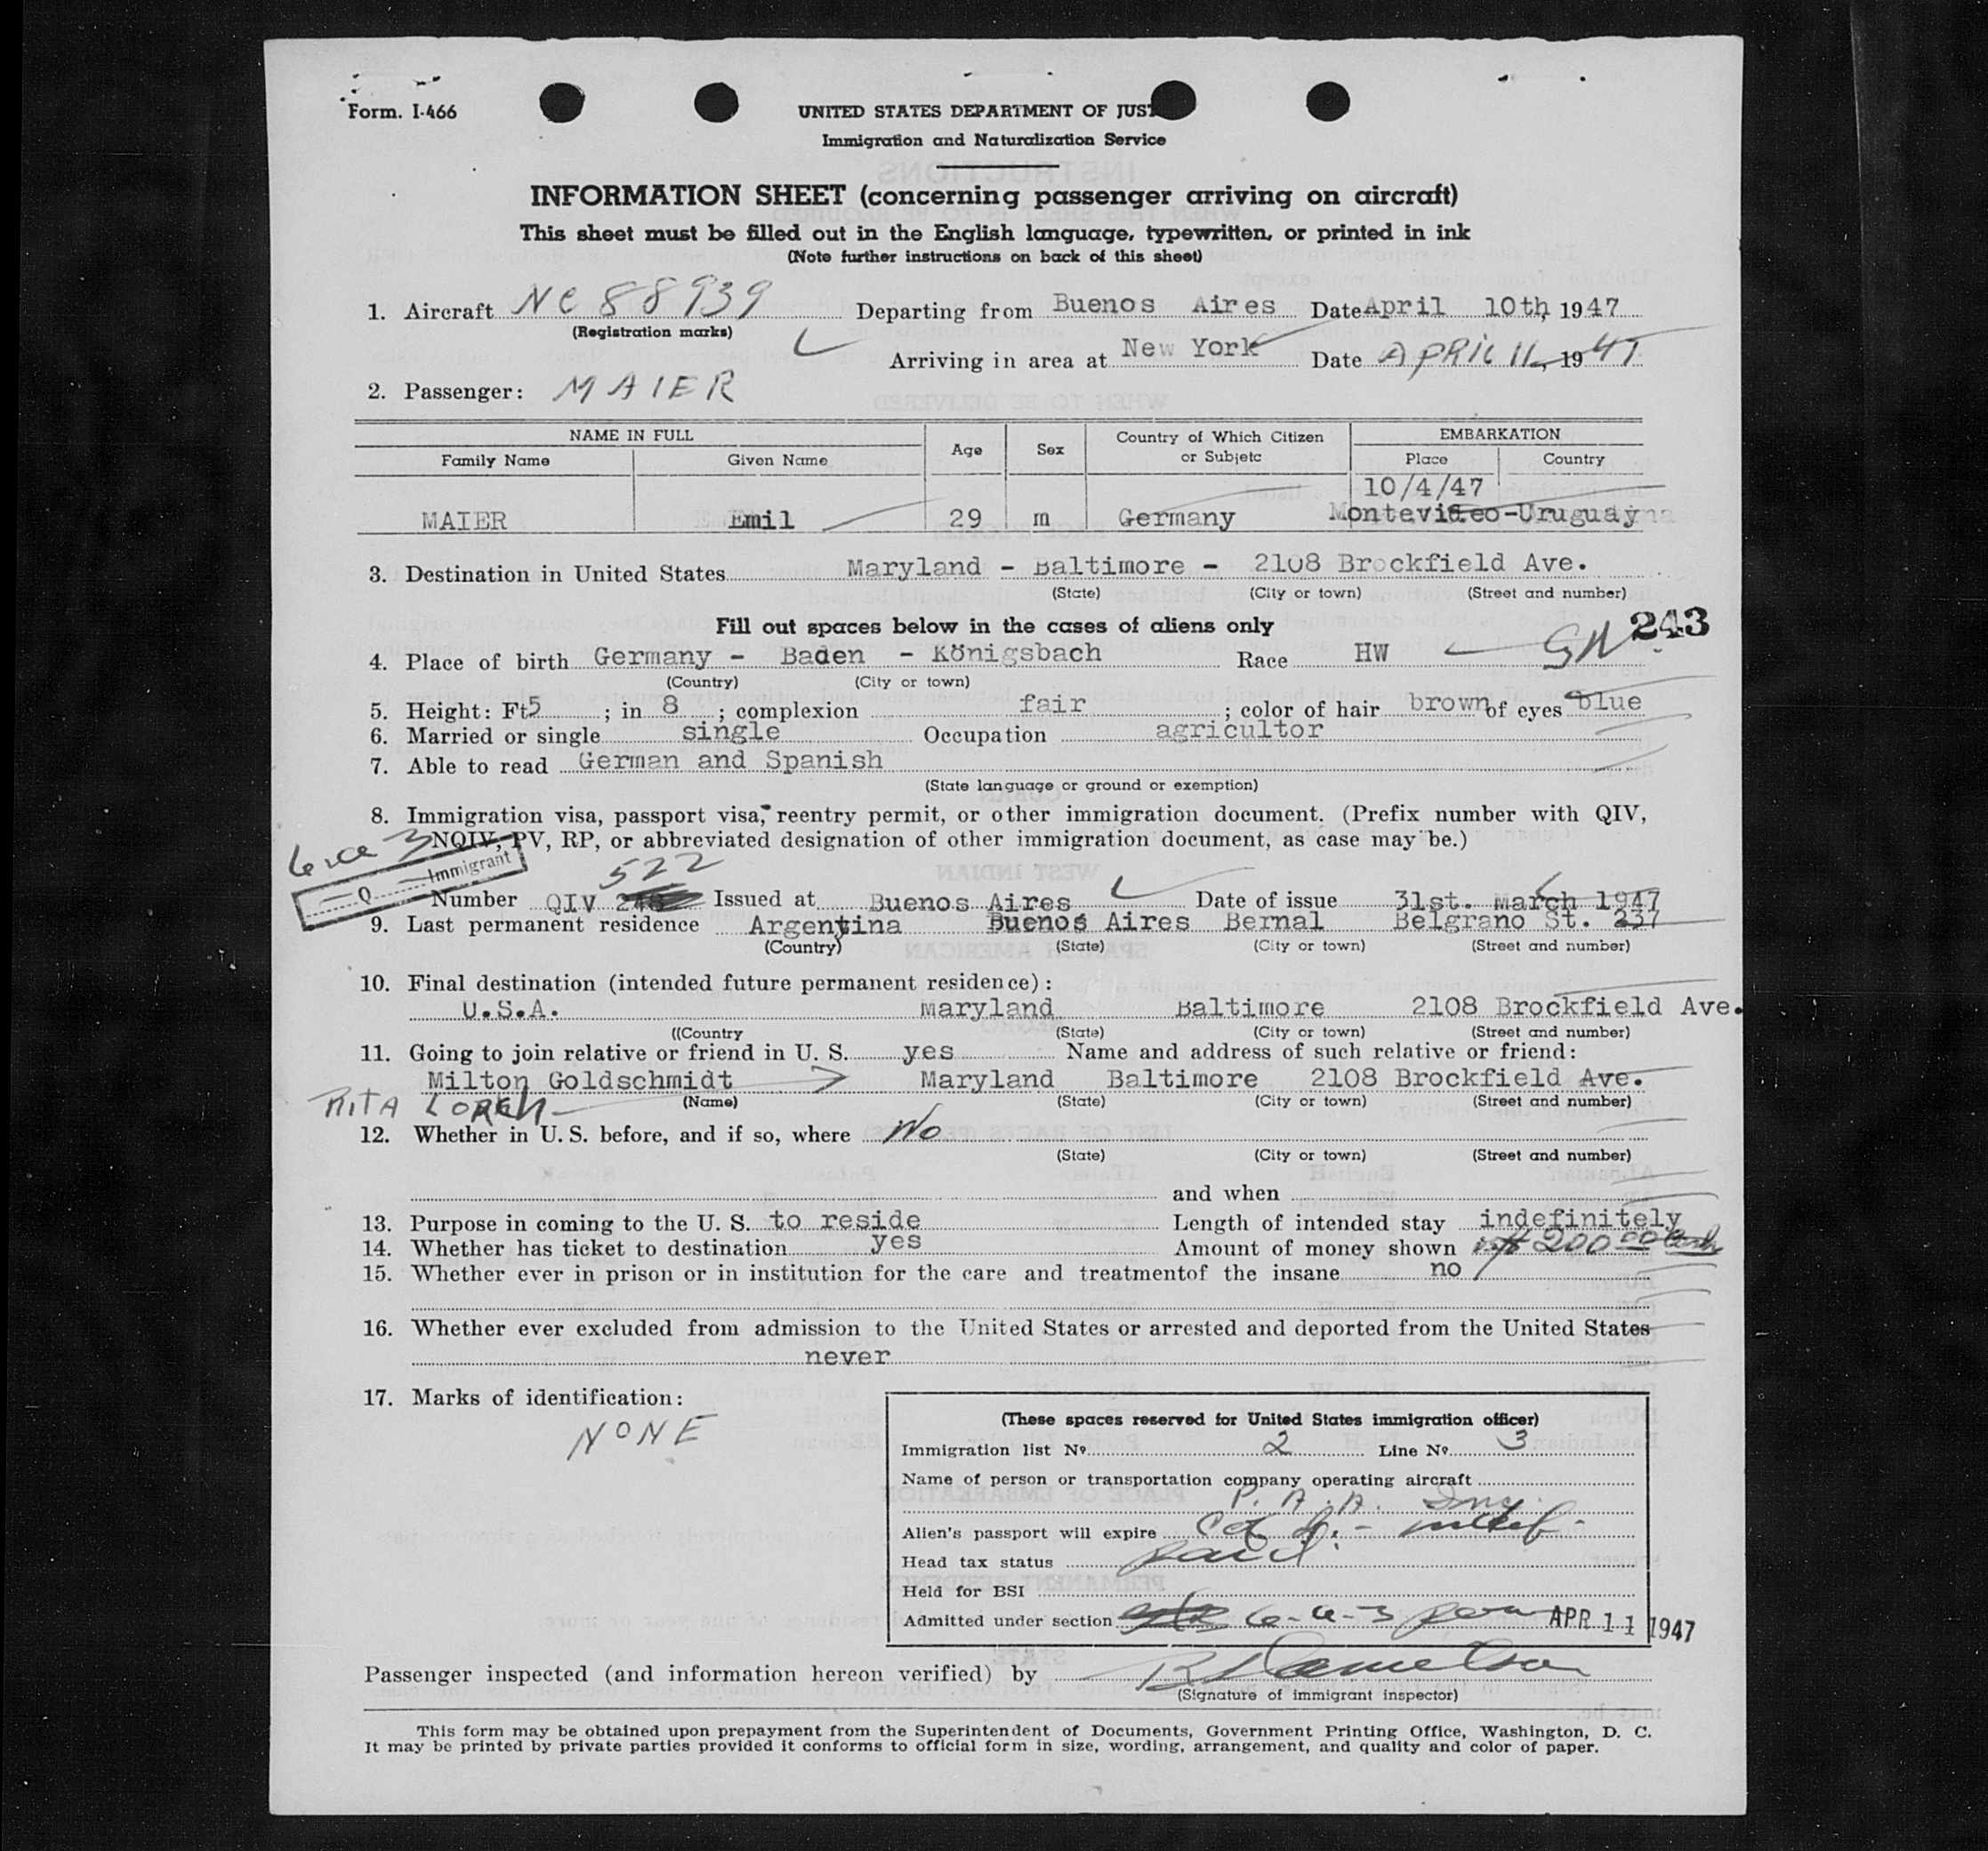 Form. I-466
UNITED STATES DEPARTMENT OF JUST
Immigration and Naturalization Service
INFORMATION SHEET (concerning passenger arriving on aircraft)
This sheet must be filled out in the English language, typewritten, or printed in ink
(Note further instructions on back of this sheet)
1. Aircraft NC 88939 Departing from Buenos Aires Date April 10th, 1947
(Registration marks)
Arriving in area at New York Date APRIL 11, 1947
2. Passenger: MAIER
NAME IN FULL Age Sex Country of Which Citizen or Subjetc EMBARKATION
Family Name Given Name Place Country
10/4/47
MAIER Emil 29 m Germany Montevideo-Uruguay
3. Destination in United States Maryland - Baltimore - 2108 Brockfield Ave.
(State) (City or town) (Street and number)
Fill out spaces below in the cases of aliens only
243
4. Place of birth Germany - Baden - Königsbach Race HW GW
(Country) (City or town)
5. Height: Ft 5 ; in 8 ; complexion fair ; color of hair brown of eyes blue
6. Married or single single Occupation agricultor
7. Able to read German and Spanish
(State language or ground or exemption)
8. Immigration visa, passport visa, reentry permit, or other immigration document. (Prefix number with QIV,
NQIV, PV, RP, or abbreviated designation of other immigration document, as case may be.)
Q Immigrant
522
Number QIV Issued at Buenos Aires Date of issue 31st. March 1947
9. Last permanent residence Argentina Buenos Aires Bernal Belgrano St. 237
(Country) (State) (City or town) (Street and number)
10. Final destination (intended future permanent residence):
U.S.A. Maryland Baltimore 2108 Brockfield Ave.
((Country (State) (City or town) (Street and number)
11. Going to join relative or friend in U. S. yes Name and address of such relative or friend:
Milton Goldschmidt Maryland Baltimore 2108 Brockfield Ave.
RITA (Name) (State) (City or town) (Street and number)
12. Whether in U. S. before, and if so, where No
(State) (City or town) (Street and number)
and when
13. Purpose in coming to the U. S. to reside Length of intended stay indefinitely
14. Whether has ticket to destination yes Amount of money shown 200.00
15. Whether ever in prison or in institution for the care and treatmentof the insane no
16. Whether ever excluded from admission to the United States or arrested and deported from the United States
never
17. Marks of identification:
NONE
(These spaces reserved for United States immigration officer)
Immigration list No. 2 Line No. 3
Name of person or transportation company operating aircraft
P. A. A. Inc.
Alien's passport will expire
Head tax status paid
Held for BSI
Admitted under section 6-a-3 APR 11 1947
Passenger inspected (and information hereon verified) by
(Signature of immigrant inspector)
This form may be obtained upon prepayment from the Superintendent of Documents, Government Printing Office, Washington, D. C.
It may be printed by private parties provided it conforms to official form in size, wording, arrangement, and quality and color of paper.